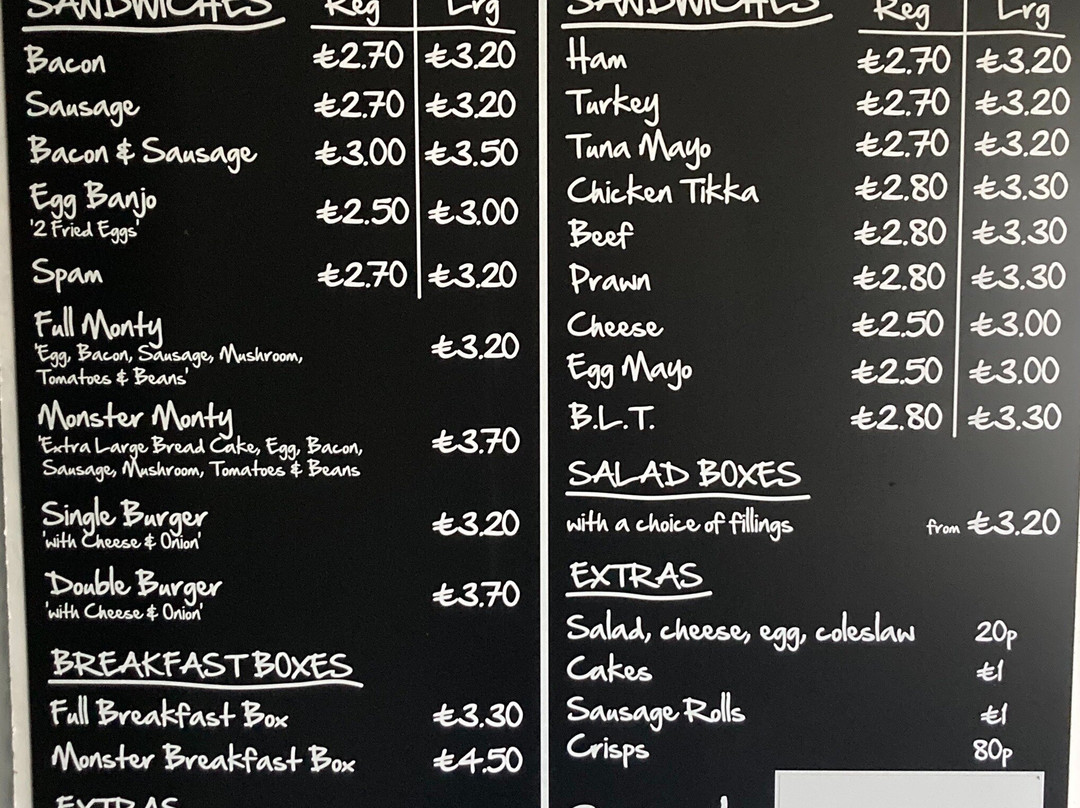 SANDWICHES Reg Lrg
Bacon £2.70 £3.20
Sausage £2.70 £3.20
Bacon & Sausage £3.00 £3.50
Egg Banjo £2.50 £3.00
'2 Fried Eggs'
Spam £2.70 £3.20
Full Monty £3.20
'Egg, Bacon, Sausage, Mushroom,
Tomatoes & Beans'
Monster Monty £3.70
'Extra Large Bread Cake, Egg, Bacon,
Sausage, Mushroom, Tomatoes & Beans
Single Burger £3.20
'with Cheese & Onion'
Double Burger £3.70
'with Cheese & Onion'
BREAKFAST BOXES
Full Breakfast Box £3.30
Monster Breakfast Box £4.50
EXTRAS
SANDWICHES Reg Lrg
Ham £2.70 £3.20
Turkey £2.70 £3.20
Tuna Mayo £2.70 £3.20
Chicken Tikka £2.80 £3.30
Beef £2.80 £3.30
Prawn £2.80 £3.30
Cheese £2.50 £3.00
Egg Mayo £2.50 £3.00
B.L.T. £2.80 £3.30
SALAD BOXES
with a choice of fillings from £3.20
EXTRAS
Salad, cheese, egg, coleslaw 20p
Cakes £1
Sausage Rolls £1
Crisps 80p